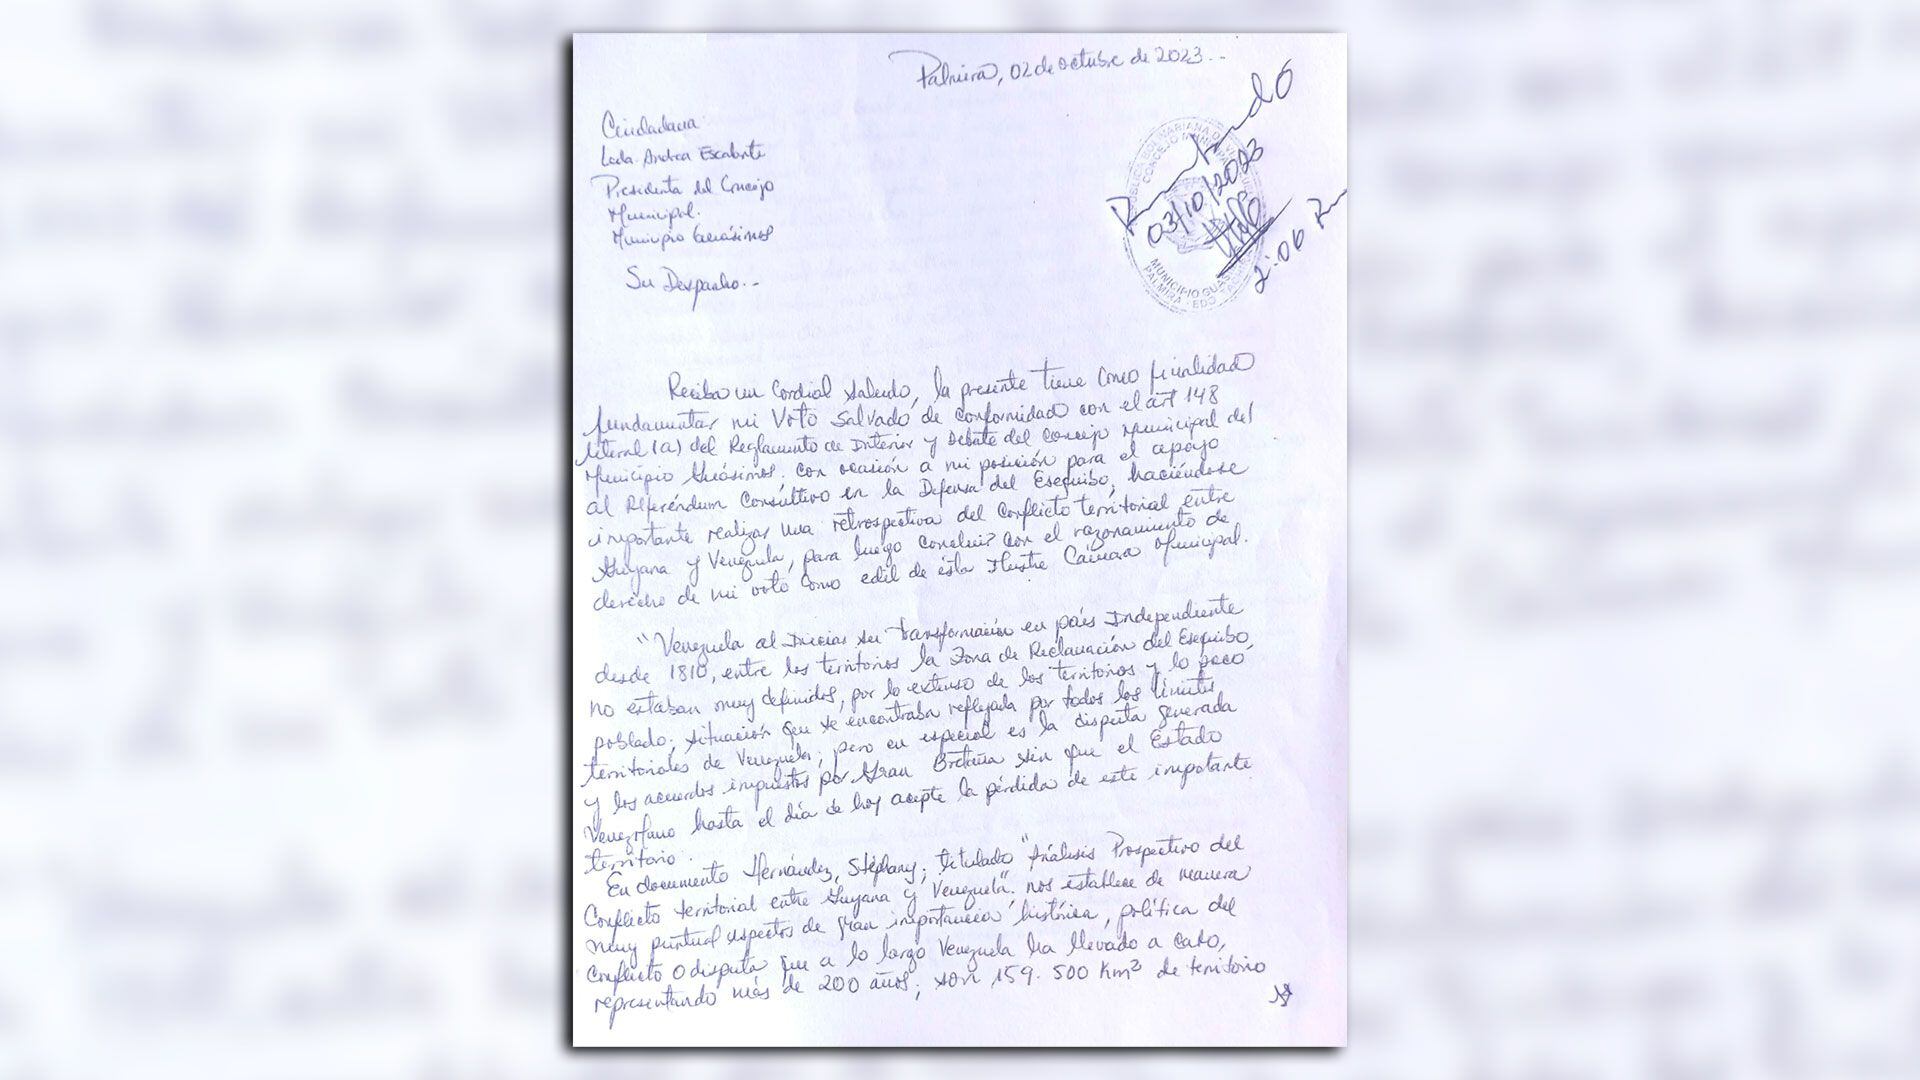 Palmira, 02 de octubre de 2023..
Ciudadana:
Lcda. Andrea Escalante
Presidenta del Concejo
Municipal.
Municipio Guásimos
Su Despacho.-
REPÚBLICA BOLIVARIANA DE VENEZUELA
CONCEJO MUNICIPAL
03/10/2023
2:06
MUNICIPIO GUÁSIMOS
PALMIRA - EDO. TÁCHIRA
Reciba un Cordial saludo, la presente tiene como finalidad
fundamentar mi Voto Salvado de conformidad con el art 148
literal (a) del Reglamento de Interior y Debate del Concejo Municipal del
Municipio Guásimos, con ocasión a mi posición para el apoyo
al Referéndum Consúltivo en la Defensa del Esequibo, haciéndose
importante realizar una retrospectiva del Conflicto territorial entre
Guyana y Venezuela, para luego concluir con el razonamiento de
derecho de mi voto como edil de ésta Ilustre Cámara Municipal.
"Venezuela al Iniciar su transformación en país Independiente
desde 1810, entre los territorios la Zona de Reclamación del Esequibo,
no estaban muy definidos, por lo extenso de los territorios y lo poco
poblado; situación que se encontraba reflejada por todos los límites
territoriales de Venezuela; pero en especial es la disputa generada
y los acuerdos impuestos por Gran Bretaña sin que el Estado
Venezolano hasta el día de hoy acepte la pérdida de este importante
territorio.
En documento Hernández, Stéphany; titulado "Análisis Prospectivo del
Conflicto territorial entre Guyana y Venezuela". nos establece de manera
muy puntual aspectos de gran importancia histórica, política del
Conflicto o disputa que a lo largo Venezuela ha llevado a cabo,
representando más de 200 años; son 159.500 Km² de territorio